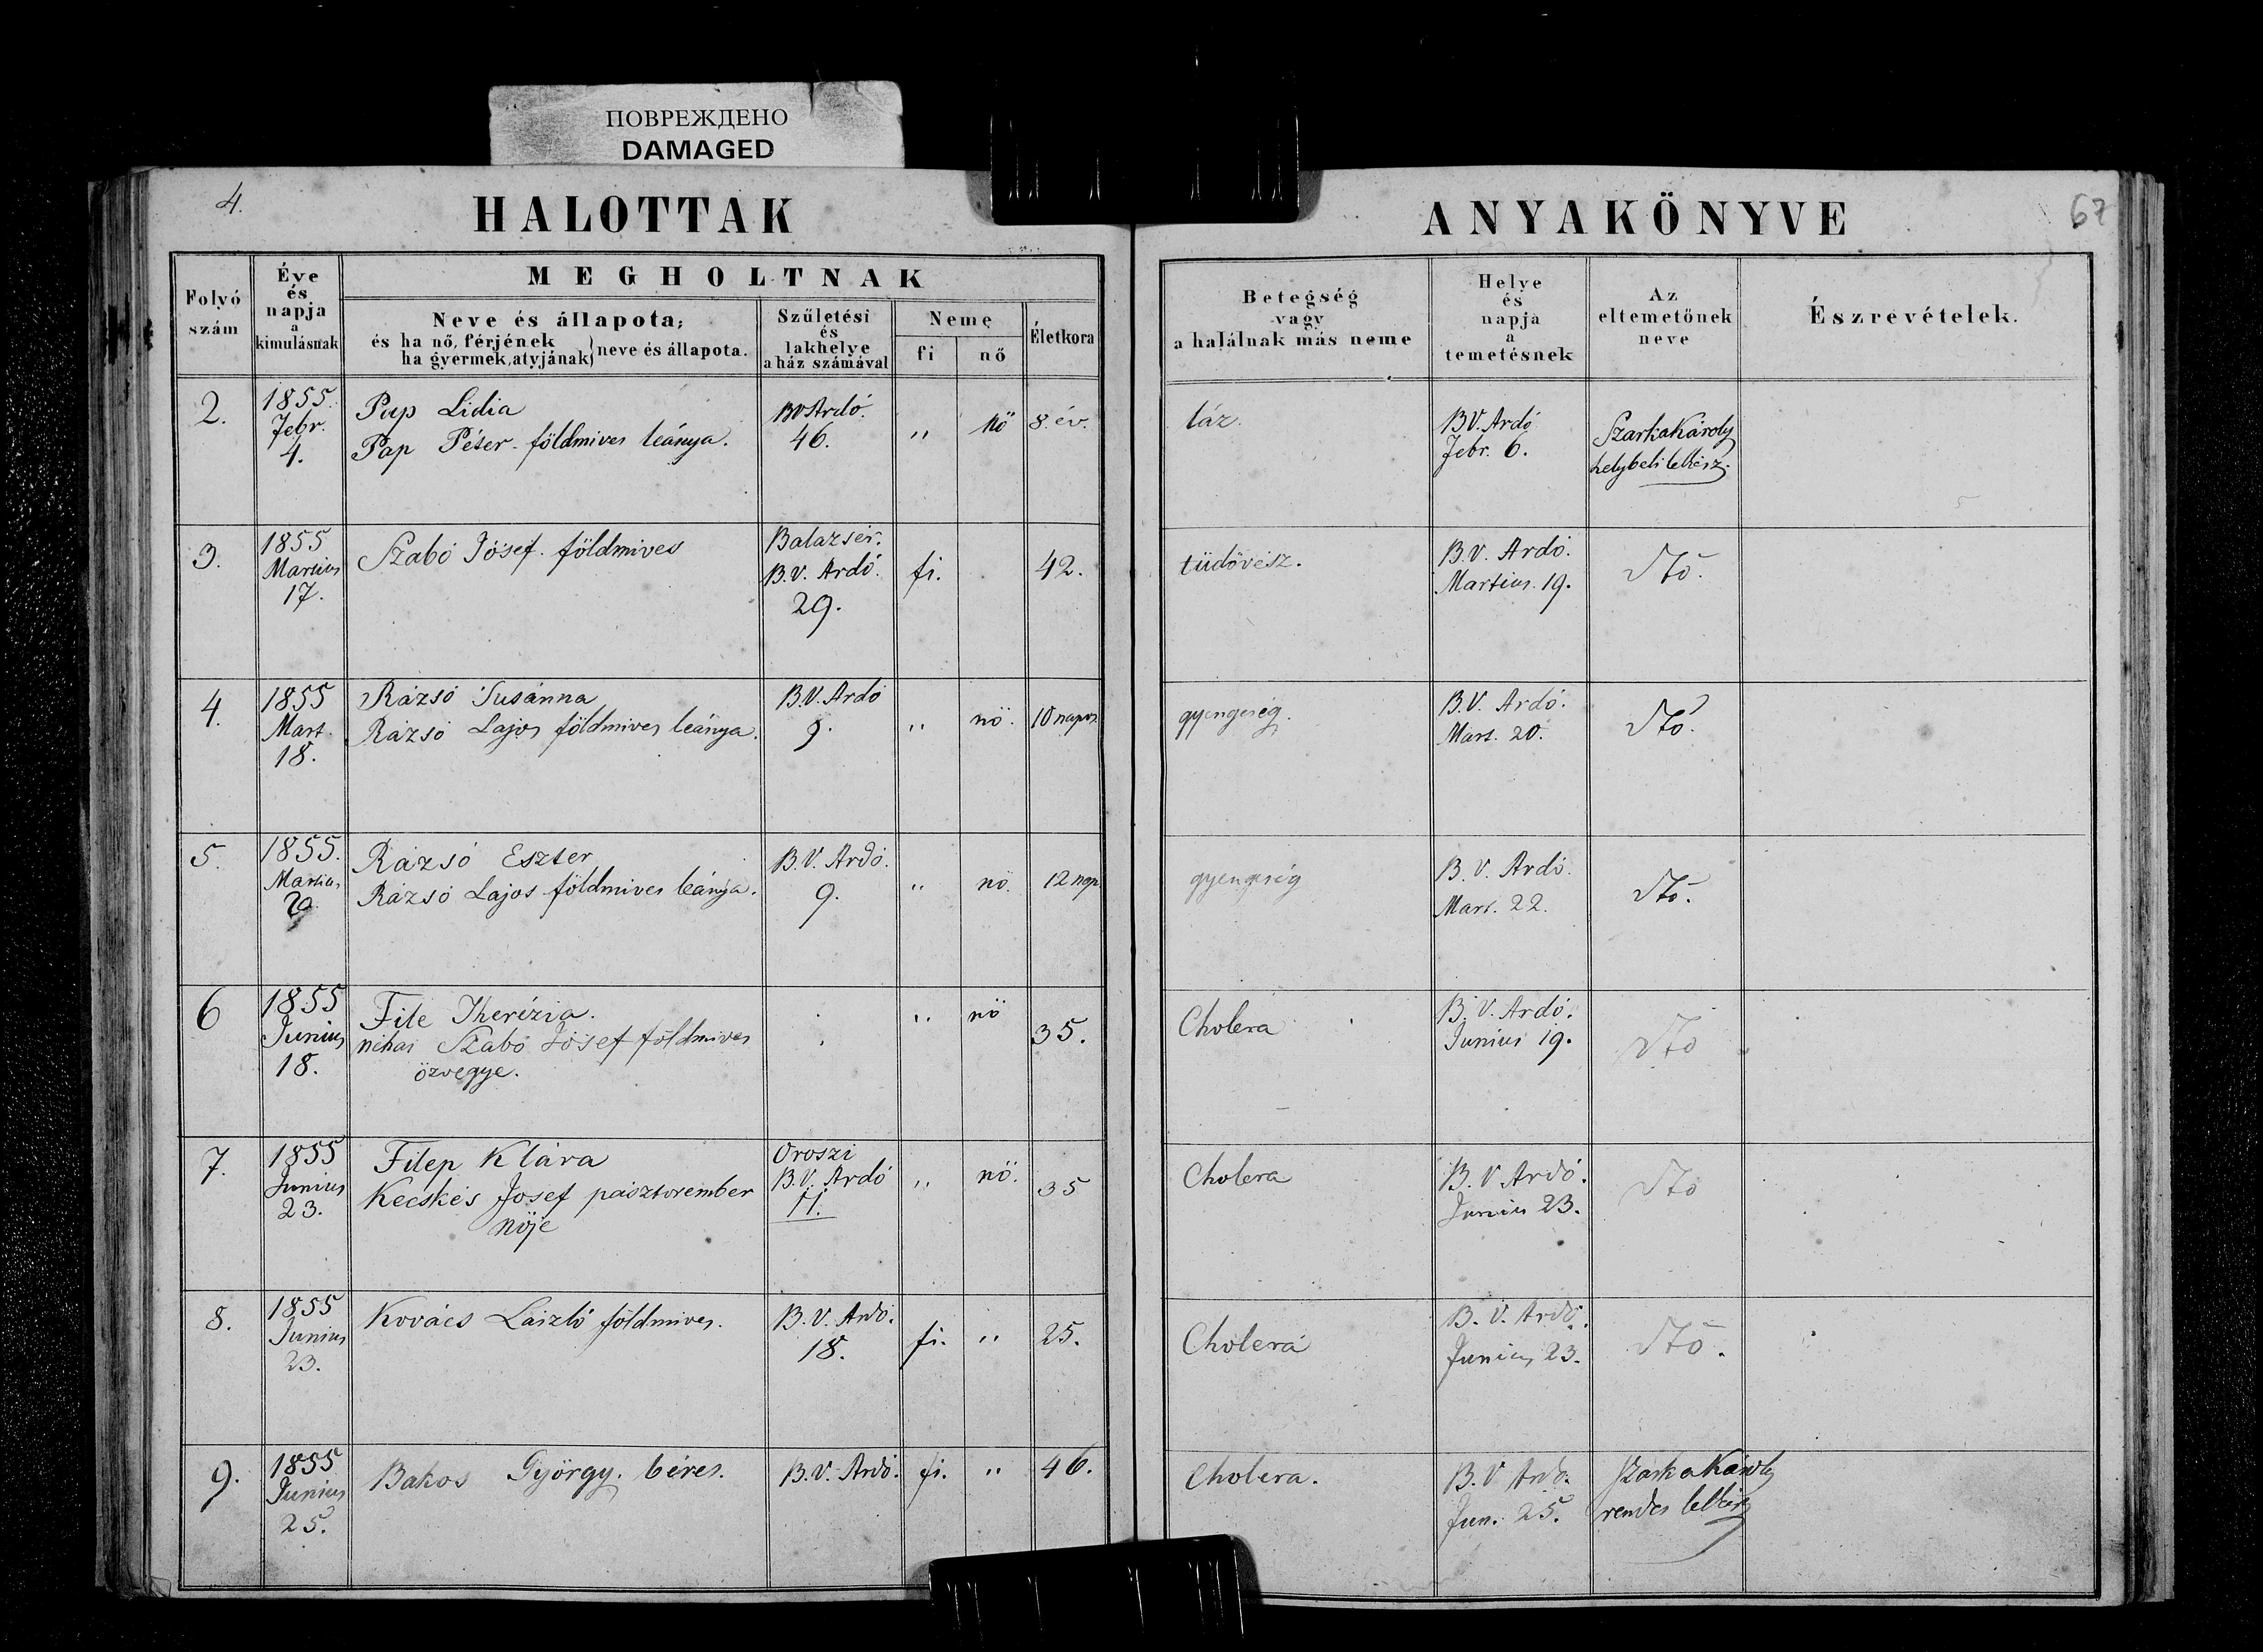 ПОВРЕЖДЕНО
DAMAGED
4.
HALOTTAK
ANYAKÖNYVE
67
Folyó
szám
Éve
és
napja
a
kimulásnak
MEGHOLTNAK
Neve és állapota;
és ha nő, férjének
ha gyermek, atyjának} neve és állapota.
Születési
és
lakhelye
a ház számával
Neme
fi
nő
Életkora
Betegség
vagy
a halálnak más neme
Helye
és
napja
a
temetésnek
Az
eltemetőnek
neve
Észrevételek.
2.
1855.
Febr.
4.
Pap Lidia
Pap Péter földmives leánya.
BV Ardó.
46.
„
nö
8. év.
láz.
B.V. Ardó
Febr. 6.
Szarka Károly
helybeli lelkész.
3.
1855
Martius
17.
Szabó Jósef. földmives
Balazsér.
B.V. Ardó.
29.
fi.
42.
tüdővész.
B.V. Ardó.
Martius. 19.
Dtó.
4.
1855
Mart.
18.
Rázsó Susánna
Rázsó Lajos földmives leánya.
B.V. Ardó
9.
„
nö.
10 napos
gyengeség.
B.V. Ardó.
Mart. 20.
Dtó.
5.
1855.
Martius
20.
Rázsó Eszter
Rázsó Lajos földmives leánya.
B.V. Ardó.
9.
„
nö.
12 nap
gyengeség
B.V. Ardó.
Mart. 22.
Dtó.
6
1855
Junius
18.
File Therézia.
néhai Szabó Jósef földmives
özvegye.
„
nö
35.
Cholera
B.V. Ardó.
Junius 19.
Dtó
7.
1855
Junius
23.
Filep Klára
Kecskés Josef pásztorember
nöje
Oroszi
B.V. Ardó
11.
„
nö.
35
Cholera
B.V. Ardó.
Junius 23.
Dtó
8.
1855
Junius
23.
Kovács László földmives.
B.V. Ardó.
18.
fi.
„
25.
Cholera
B.V. Ardó.
Junius 23.
Dtó.
9.
1855
Junius
25.
Bakos György. béres.
B.V. Ardó.
fi.
„
46.
Cholera.
B.V. Ardó.
Jun. 25.
Szarka Károly
rendes lelkész